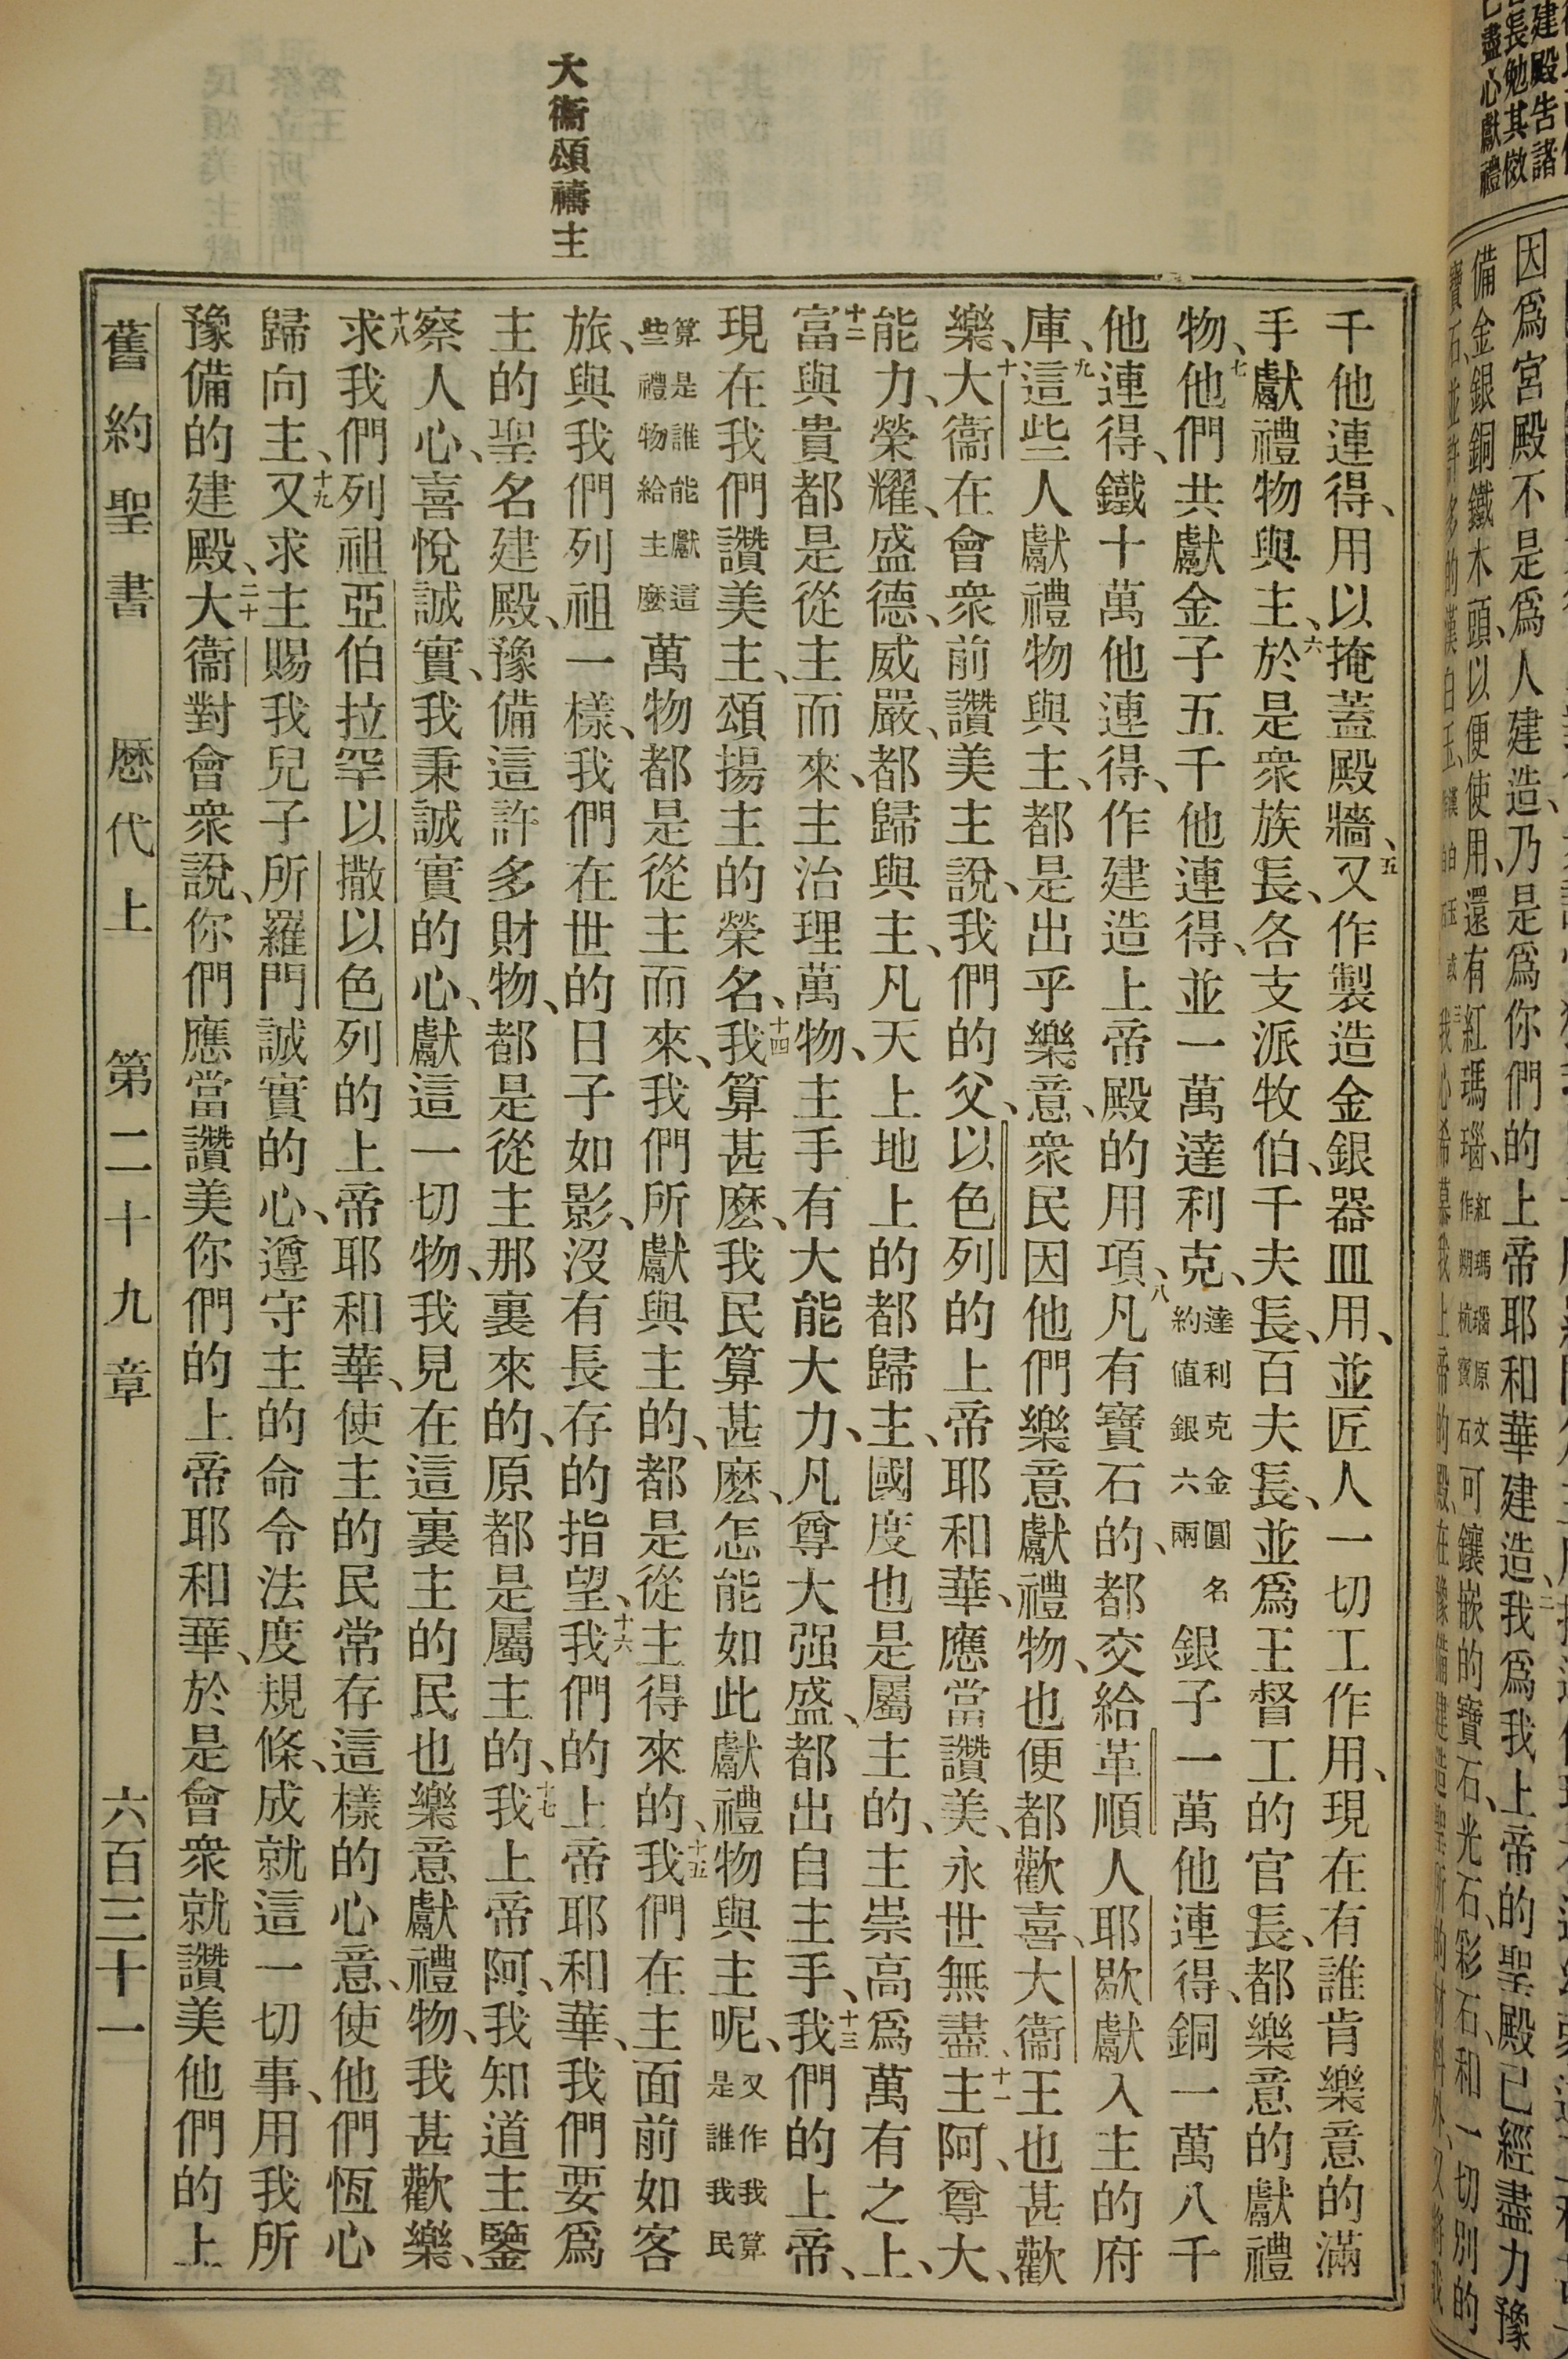 大衞頌禱主
千他連得、用以掩蓋殿牆、五又作製造金銀器皿用、並匠人一切工作用、現在有誰肯樂意的滿
手獻禮物與主、六於是衆族長、各支派牧伯、千夫長、百夫長、並爲王督工的官長、都樂意的獻禮
物、七他們共獻金子五千他連得、並一萬達利克、達利克金圓名約值銀六兩銀子一萬他連得、銅一萬八千
他連得、鐵十萬他連得、作建造上帝殿的用項、八凡有寶石的、都交給革順人耶歇獻入主的府
庫、九這些人獻禮物與主、都是出乎樂意、衆民因他們樂意獻禮物、也便都歡喜、大衞王也甚歡
樂、十大衞在會衆前讚美主說、我們的父、以色列的上帝耶和華、應當讚美、永世無盡、十一主阿、尊大、
能力、榮耀、盛德、威嚴、都歸與主、凡天上地上的都歸主、國度也是屬主的、主崇高爲萬有之上、
十二富與貴都是從主而來、主治理萬物、主手有大能大力、凡尊大强盛、都出自主手、十三我們的上帝、
現在我們讚美主、頌揚主的榮名、十四我算甚麽、我民算甚麽、怎能如此獻禮物與主呢、又作我算是誰我民
算是誰能獻這些禮物給主麽萬物都是從主而來、我們所獻與主的、都是從主得來的、十五我們在主面前如客
旅、與我們列祖一樣、我們在世的日子如影、沒有長存的指望、十六我們的上帝耶和華、我們要爲
主的聖名建殿、豫備這許多財物、都是從主那裏來的、原都是屬主的、十七我上帝阿、我知道主鑒
察人心、喜悅誠實、我秉誠實的心、獻這一切物、我見在這裏主的民也樂意獻禮物、我甚歡樂、
十八求我們列祖亞伯拉罕以撒以色列的上帝耶和華、使主的民常存這樣的心意、使他們恆心
歸向主、十九又求主賜我兒子所羅門誠實的心、遵守主的命令法度規條、成就這一切事、用我所
豫備的建殿、二十大衞對會衆說、你們應當讚美你們的上帝耶和華、於是會衆就讚美他們的上
舊約聖書 歷代上 第二十九章 六百三十一